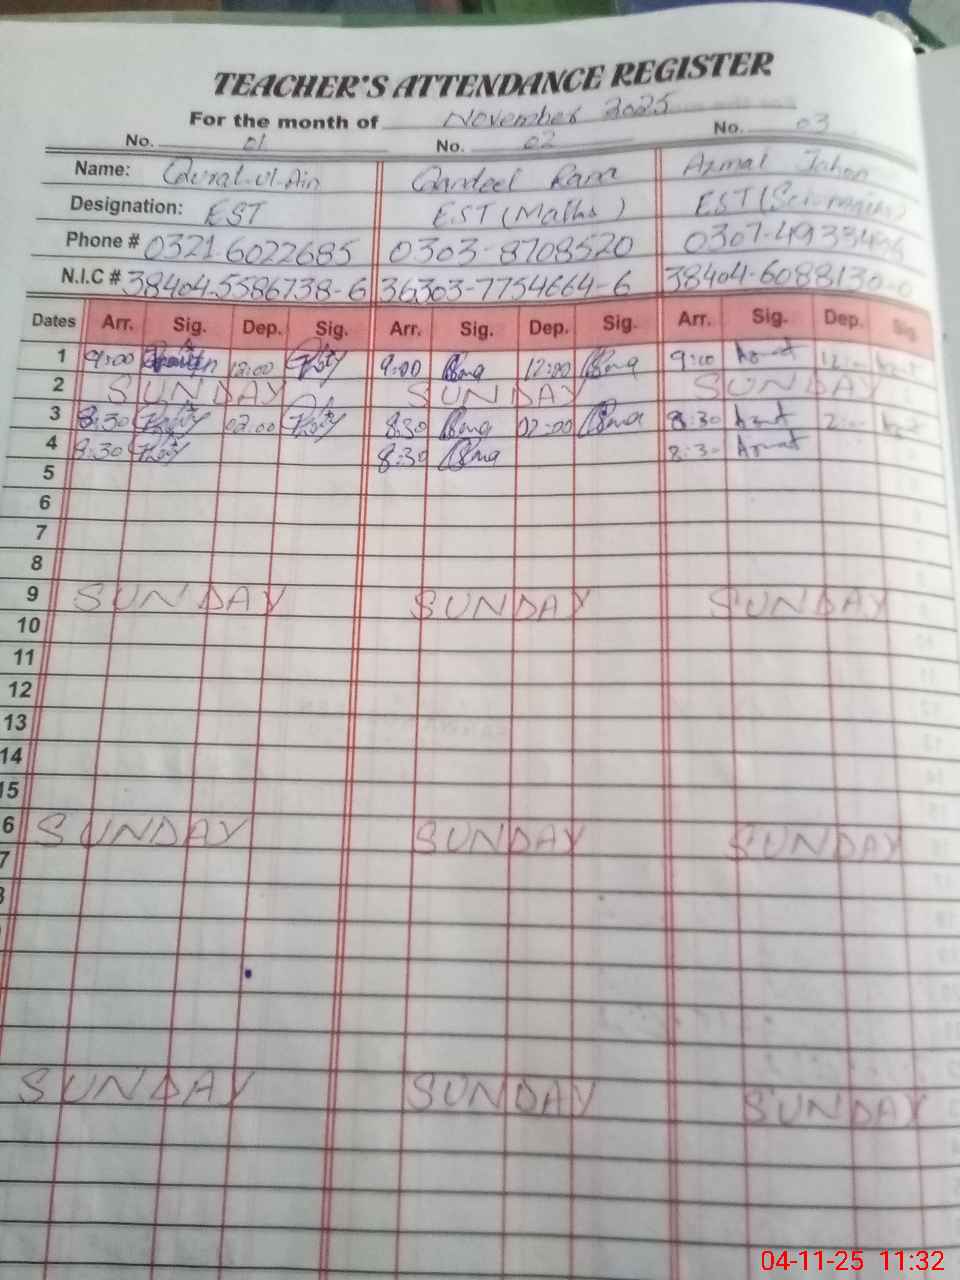 TEACHER'S ATTENDANCE REGISTER
For the month of November 2025
No. 01 No. 02 No. 03
Name: Qurat-ul-Ain Qandeel Rana Azmat Jahan
Designation: EST EST (Maths) EST (Sci-
Phone # 0321-6022685 0303-8708520 0307-49334
N.I.C # 38404-5586738-6 36303-7754664-6 38404-6088130-0
Dates Arr. Sig. Dep. Sig. Arr. Sig. Dep. Sig. Arr. Sig. Dep. Sig.
1 9:00 12:00 9:00 12:00 9:00 Azmat 12:00 Azmat
2 SUNDAY SUNDAY SUNDAY
3 8:30 02:00 8:30 02:00 8:30 Azmat 2:00 Azmat
4 8:30 8:30 8:30 Azmat
5
6
7
8
9 SUNDAY SUNDAY SUNDAY
10
11
12
13
14
15
6 SUNDAY SUNDAY SUNDAY
7
SUNDAY SUNDAY SUNDAY
04-11-25 11:32